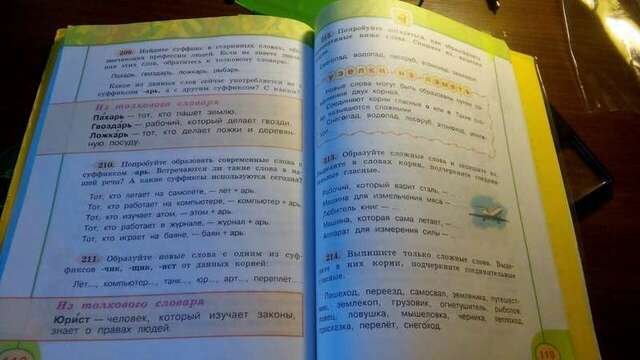 209. Найдите суффикс в старинных словах, обо-
значающих профессии людей. Если не знаете значе-
ния этих слов, обратитесь к толковому словарю.
Пахарь, гвоздарь, ложкарь, рыбарь.
Какие из данных слов сейчас употребляются не с
суффиксом -арь, а с другим суффиксом? С каким?
Из толкового словаря
Пахарь — тот, кто пашет землю.
Гвоздарь — рабочий, который делает гвозди.
Ложкарь — тот, кто делает ложки и деревян-
ную посуду.
210. Попробуйте образовать современные слова с
суффиксом -арь. Встречаются ли такие слова в на-
шей речи? А какие суффиксы используются сегодня?
Тот, кто летает на самолёте, — лет + арь.
Тот, кто работает на компьютере, — компьютер + арь.
Тот, кто изучает атом, — атом + арь.
Тот, кто работает в журнале, — журнал + арь.
Тот, кто играет на баяне, — баян + арь.
211. Образуйте новые слова с одним из суф-
фиксов -чик, -щик, -ист от данных корней:
Лёт..., компьютер..., танк..., юр..., арт..., переплёт...
Из толкового словаря
Юрист — человек, который изучает законы,
знает о правах людей.
Попробуйте догадаться, как образованы
ниже слова. Спишите их,
водопад, лесоруб,
Узелки на память
Новые слова могут быть образованы путём
двух корней.
Соединяют корни гласные о или е. Такие
называются сложными.
Снегопад, водопад, лесоруб,
213. Образуйте сложные слова и запишите их.
в словах корни, подчеркните
гласные.
Рабочий, который варит сталь, —
Машина для измельчения мяса —
Любитель книг —
Машина, которая сама летает, —
Аппарат для измерения силы —
214. Выпишите только сложные слова. Выде-
в них корни, подчеркните соединительные
гласные.
Пешеход, переезд, самосвал, земляника, путешест-
землекоп, грузовик, огнетушитель, рыболов,
ловушка, мышеловка, черника, теплоход,
перелёт, снегоход.
119